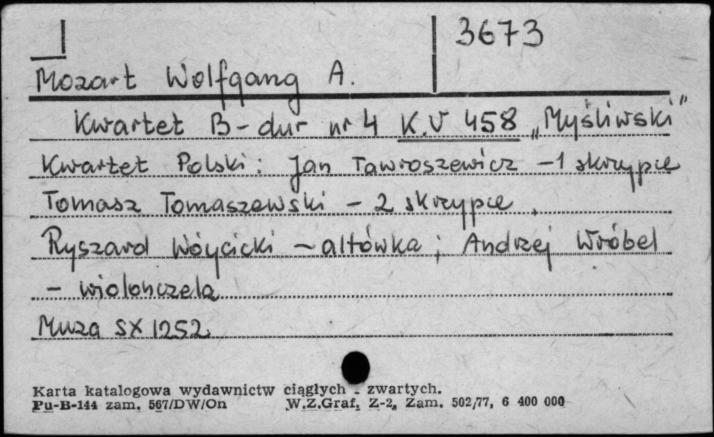 3673
Mozart Wolfgang A.
Kwartet B-dur nr 4 K.V 458 „Myśliwski”
Kwartet Polski: Jan Tawroszewicz - 1 skrzypce
Tomasz Tomaszewski - 2 skrzypce,
Ryszard Wóycicki - altówka; Andrzej Wróbel
- wiolonczela
Muza SX 1252
Karta katalogowa wydawnictw ciągłych - zwartych.
Pu-B-144 zam. 567/DW/On W.Z.Graf. Z-2, Zam. 502/77, 6 400 000